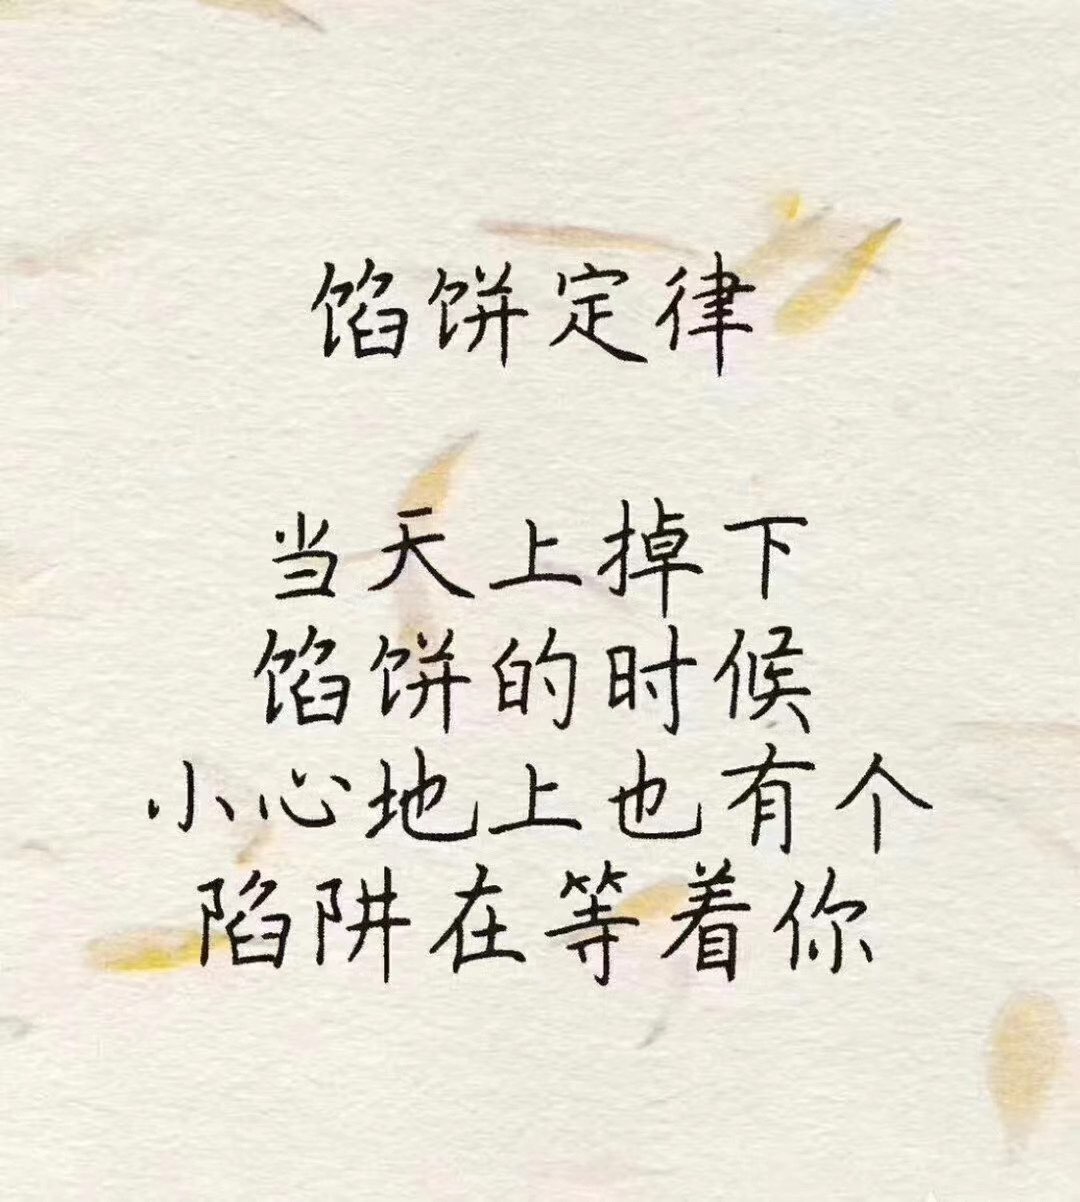 馅饼定律
当天上掉下
馅饼的时候
小心地上也有个
陷阱在等着你